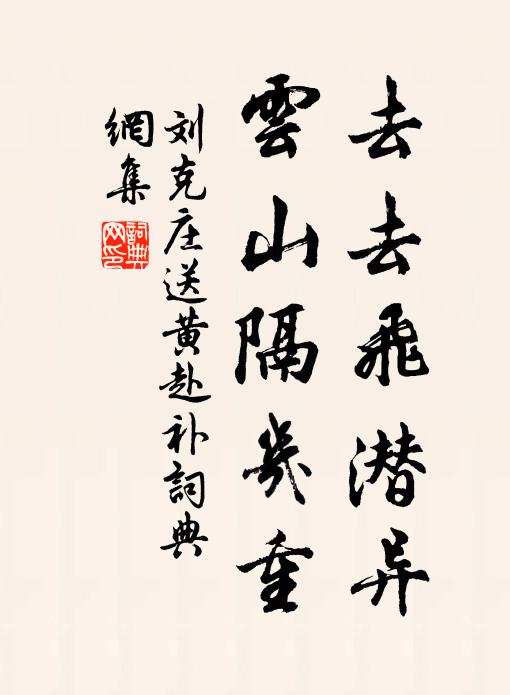 去去飛潜异
雲山隔幾重
刘克庄送黄赴补詞典
網集
詞典網印